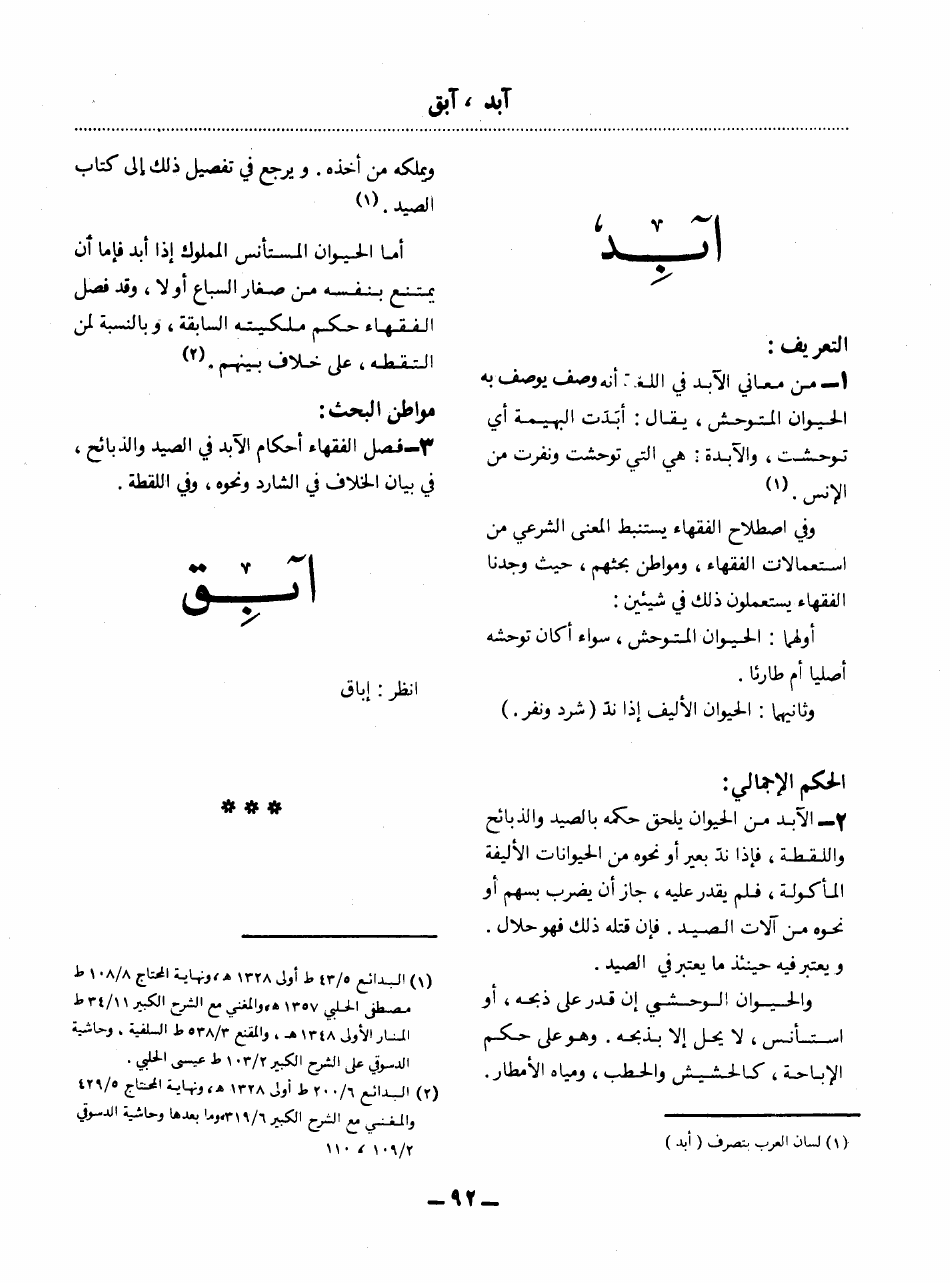 آبد ، آبق
آبِد
التعريف :
١ــ من معاني الآبد في اللغة أنه وصف يوصف به
الحيوان المتوحش ، يقال : أبَدَت البهيمة أي
توحشت ، والآبدة : هي التي توحشت ونفرت من
الإنس . (١)
وفي اصطلاح الفقهاء يستنبط المعنى الشرعي من
استعمالات الفقهاء ، ومواطن بحثهم ، حيث وجدنا
الفقهاء يستعملون ذلك في شيئين :
أولهما : الحيوان المتوحش ، سواء أكان توحشه
أصليا أم طارئا .
وثانيهما : الحيوان الأليف إذا ندّ ( شرد ونفر . )
الحكم الإجمالي :
٢ــ الآبد من الحيوان يلحق حكمه بالصيد والذبائح
واللقطة ، فإذا ندّ بعير أو نحوه من الحيوانات الأليفة
المأكولة ، فلم يقدر عليه ، جاز أن يضرب بسهم أو
نحوه من آلات الصيد . فإن قتله ذلك فهو حلال .
و يعتبر فيه حينئذ ما يعتبر في الصيد .
والحيوان الوحشي إن قدر على ذبحه ، أو
استأنس ، لا يحل إلا بذبحه . وهو على حكم
الإباحة ، كالحشيش والحطب ، ومياه الأمطار .
(١) لسان العرب بتصرف ( أبد )
ويملكه من أخذه . و يرجع في تفصيل ذلك إلى كتاب
الصيد . (١)
أما الحيوان المستأنس المملوك إذا أبد فإما أن
يمتنع بنفسه من صغار السباع أولا ، وقد فصل
الفقهاء حكم ملكيته السابقة ، وبالنسبة لمن
التقطه ، على خلاف بينهم . (٢)
مواطن البحث :
٣ــ فصل الفقهاء أحكام الآبد في الصيد والذبائح ،
في بيان الخلاف في الشارد ونحوه ، وفي اللقطة .
آبِق
انظر : إباق
***
(١) البدائع ٤٣/٥ ط أولى ١٣٢٨ هـ ، ونهاية المحتاج ١٠٨/٨ ط
مصطفى الحلبي ١٣٥٧ هـ ، والمغني مع الشرح الكبير ٣٤/١١ ط
المنار الأولى ١٣٤٨ هـ ، والمقنع ٥٣٨/٣ ط السلفية ، وحاشية
الدسوقي على الشرح الكبير ١٠٣/٢ ط عيسى الحلبي .
(٢) البدائع ٢٠٠/٦ ط أولى ١٣٢٨ هـ ، ونهاية المحتاج ٤٢٩/٥
والمغني مع الشرح الكبير ٣١٩/٦ وما بعدها وحاشية الدسوقي
١٠٩/٢ ، ١١٠
ــ ٩٢ ــ